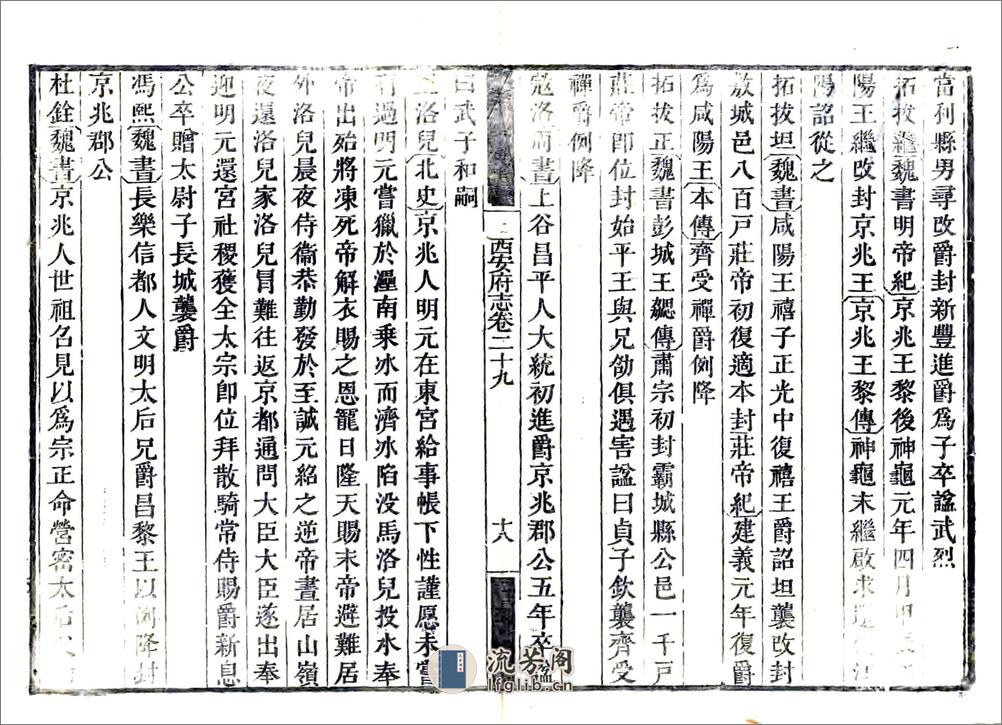 當利縣男尋改爵封新豐進爵爲子卒諡武烈
拓拔繼魏書明帝紀京兆王黎後神龜元年四月
陽王繼改封京兆王京兆王黎傳神龜末繼啟求還
陽詔從之
拓拔坦魏書咸陽王禧子正光中復禧王爵詔坦襲改封
敷城邑八百戸莊帝初復適本封莊帝紀建義元年復爵
爲咸陽王本傳齊受禪爵例降
拓拔正魏書彭城王勰傳肅宗初封霸城縣公邑一千戸
莊帝即位封始平王與兄劭俱遇害諡曰貞子欽襲齊受
禪爵例降
寇洛周書上谷昌平人大統初進爵京兆郡公五年卒諡
曰武子和嗣
西安府志卷二十九
十八
王洛兒北史京兆人明元在東宮給事帳下性謹愿未嘗
有過明元嘗獵於㶟南乗冰而濟冰陷没馬洛兒投水奉
帝出殆將凍死帝解衣賜之恩寵日隆天賜末帝避難居
外洛兒晨夜侍衞恭勤發於至誠元紹之逆帝晝居山嶺
夜還洛兒家洛兒冒難往返京都通問大臣大臣遂出奉
迎明元還宮社稷獲全太宗卽位拜散騎常侍賜爵新息
公卒贈太尉子長城襲爵
馮熙魏書長樂信都人文明太后兄爵昌黎王以例降封
京兆郡公
杜銓魏書京兆人世祖召見以爲宗正命營密太后
流芳阁
lfglib.cn